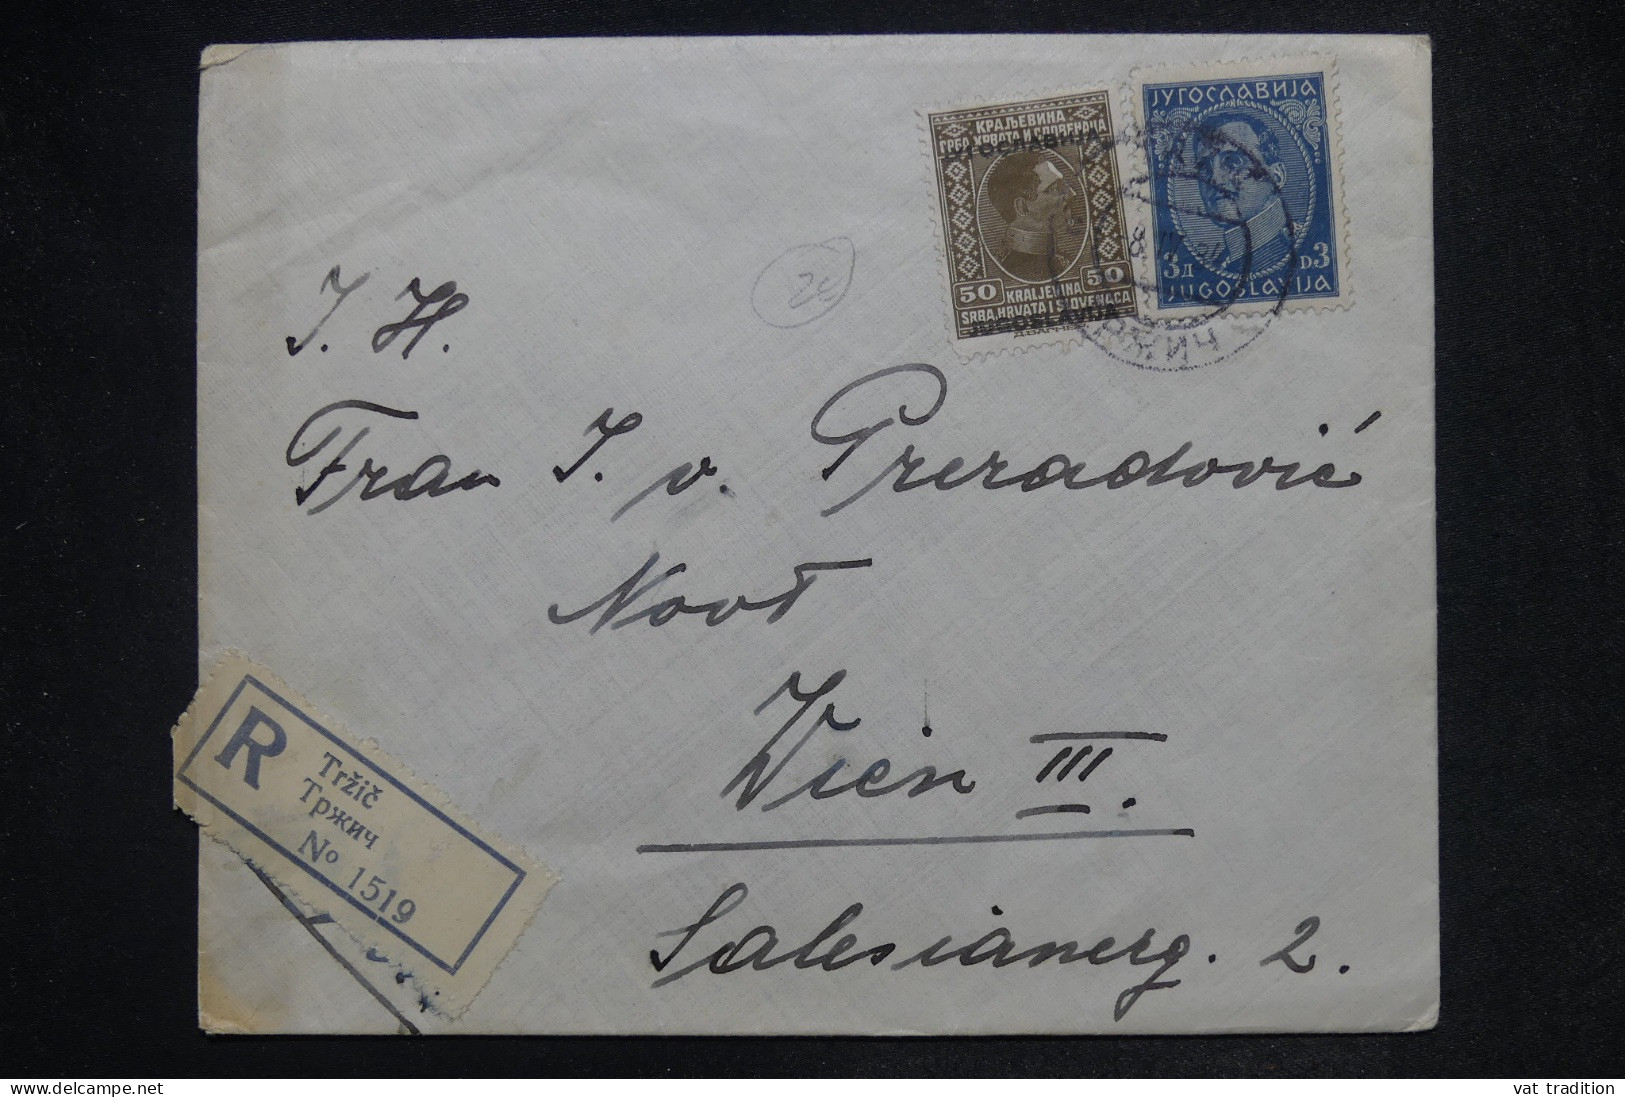 КРАЉЕВИНА
СРБА, ХРВАТА И СЛОВЕНАЦА
ЈУГОСЛАВИЈА
50 50
KRALJEVINA
SRBA, HRVATA I SLOVENACA
JUGOSLAVIJA
ЈУГОСЛАВИЈА
3Д D3
JUGOSLAVIJA
I. H.
Frau I. v. Preradović
Wien III.
Salesianerg. 2.
R
Tržič
Тржич
No 1519
www.delcampe.net
vat tradition